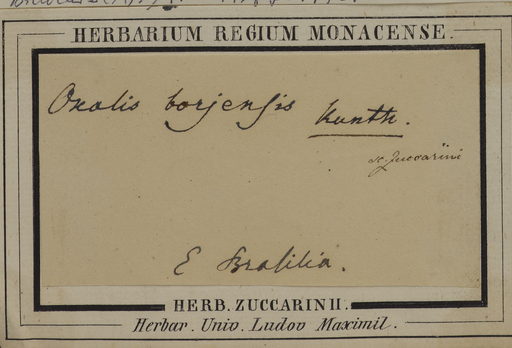 HERBARIUM REGIUM MONACENSE.
Oxalis borjensis Kunth.
Zuccarini
E Brasilia.
HERB. ZUCCARINII.
Herbar. Univ. Ludov Maximil.